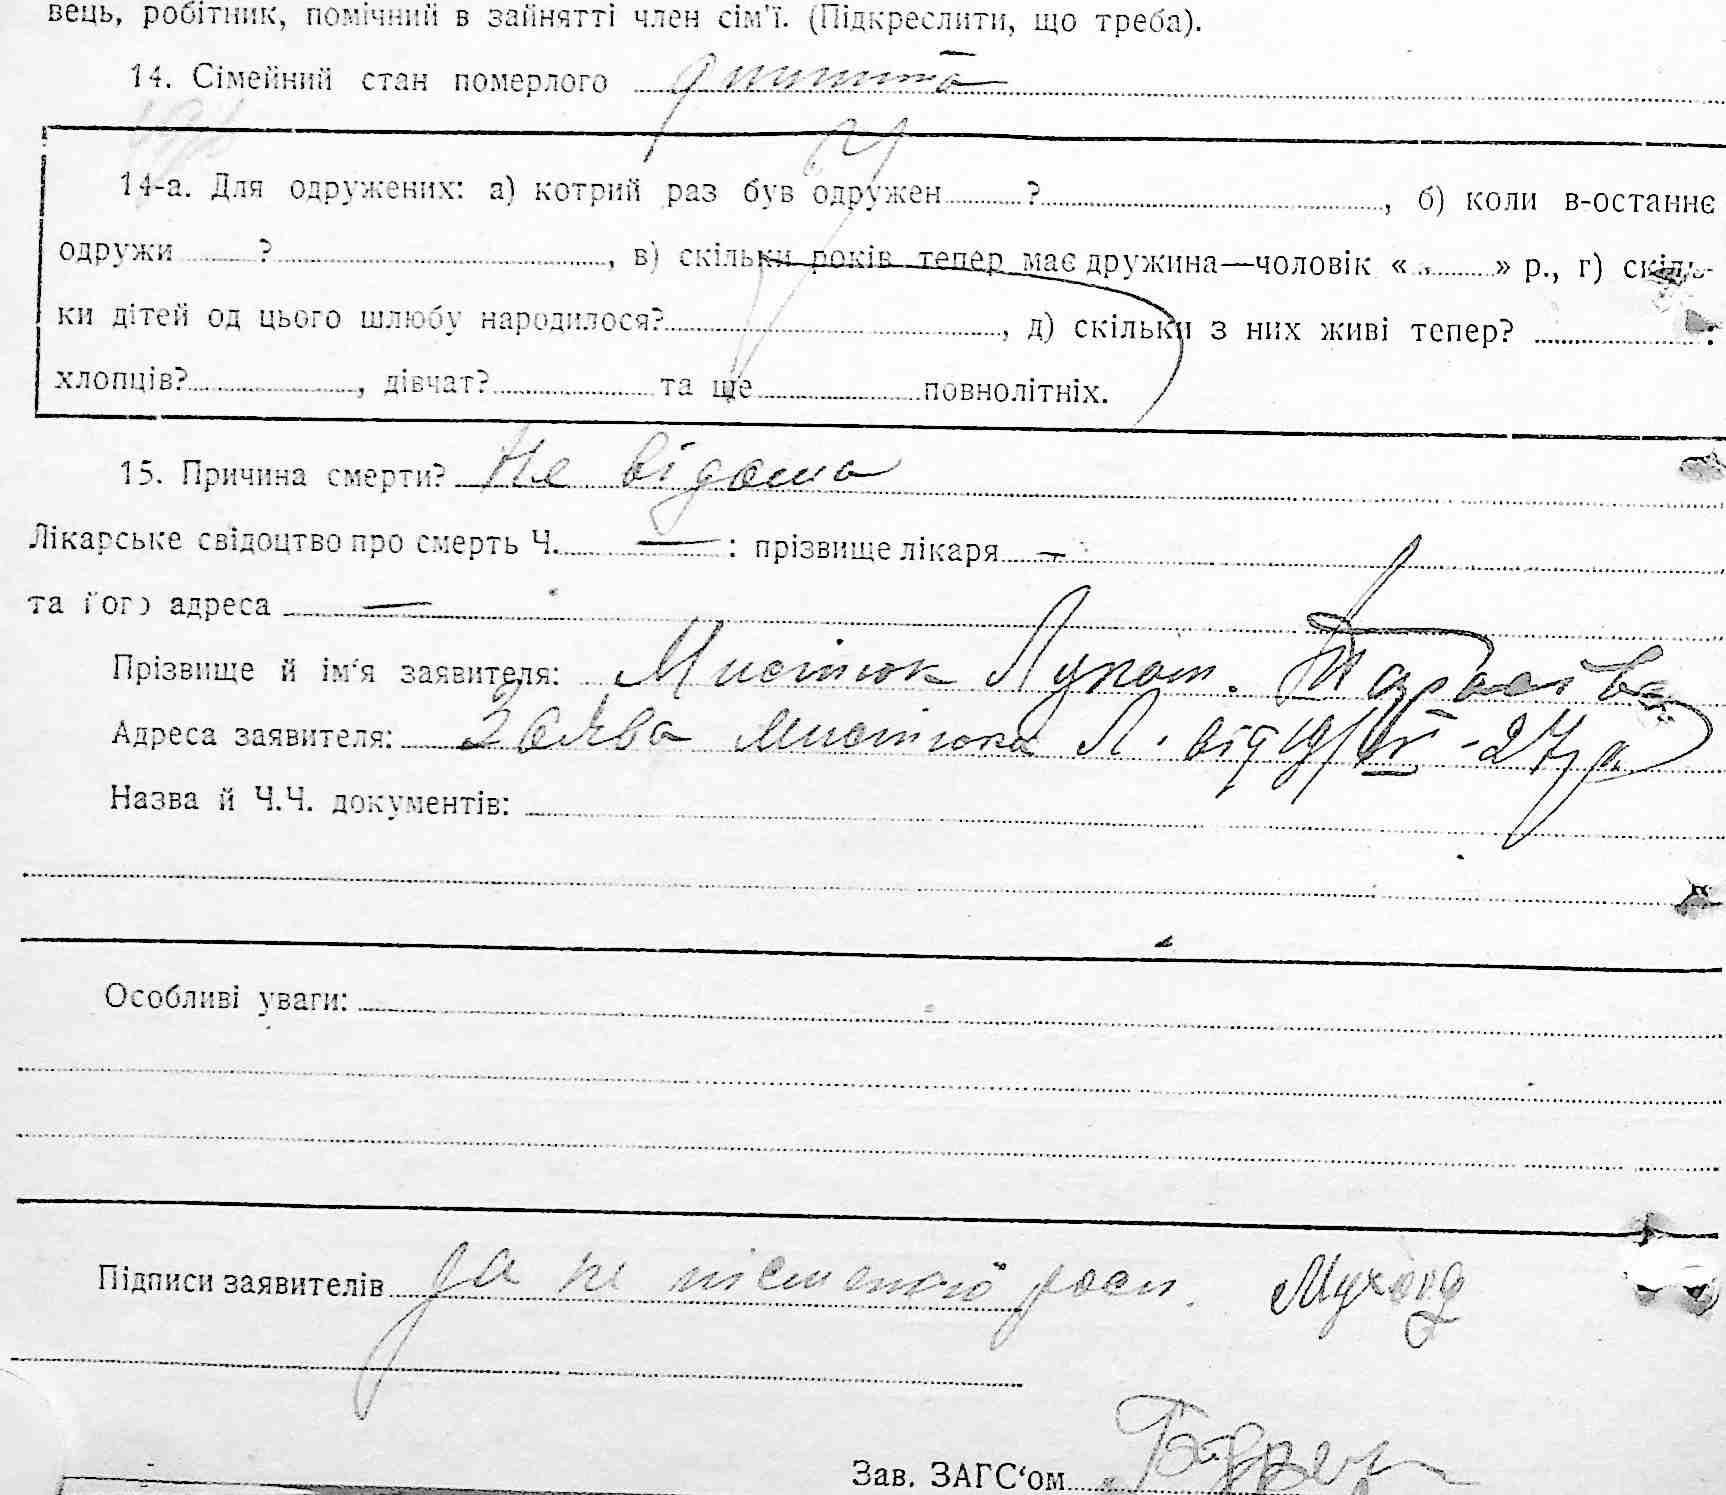 вець, робітник, помічний в зайнятті член сім'ї. (Підкреслити, що треба).
14. Сімейний стан померлого дитина
14-а. Для одружених: а) котрий раз був одружен ? , б) коли в-останнє
одружи ? , в) скільки років тепер має дружина—чоловік « » р., г) скіль-
ки дітей од цього шлюбу народилося? , д) скільки з них живі тепер? :
хлопців? , дівчат? та ще повнолітніх.
15. Причина смерти? Не відома
Лікарське свідоцтво про смерть Ч. — : прізвище лікаря —
та його адреса —
Прізвище й ім'я заявителя:
Адреса заявителя: Заява Л. від -27 р.
Назва й Ч.Ч. документів:
Особливі уваги:
Підписи заявителів За не
Зав. ЗАГС'ом